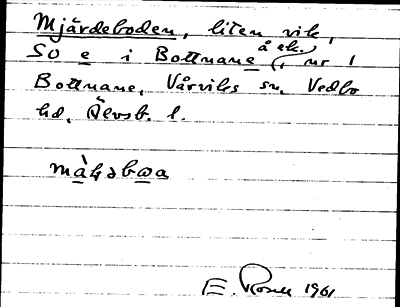 Mjärdeboden, liten vik,
SO e i Bottnane (å ek.), nr 1
Bottnane, Vårviks sn, Vedbo
hd, Älvsb. l.
E. Rosell 1961